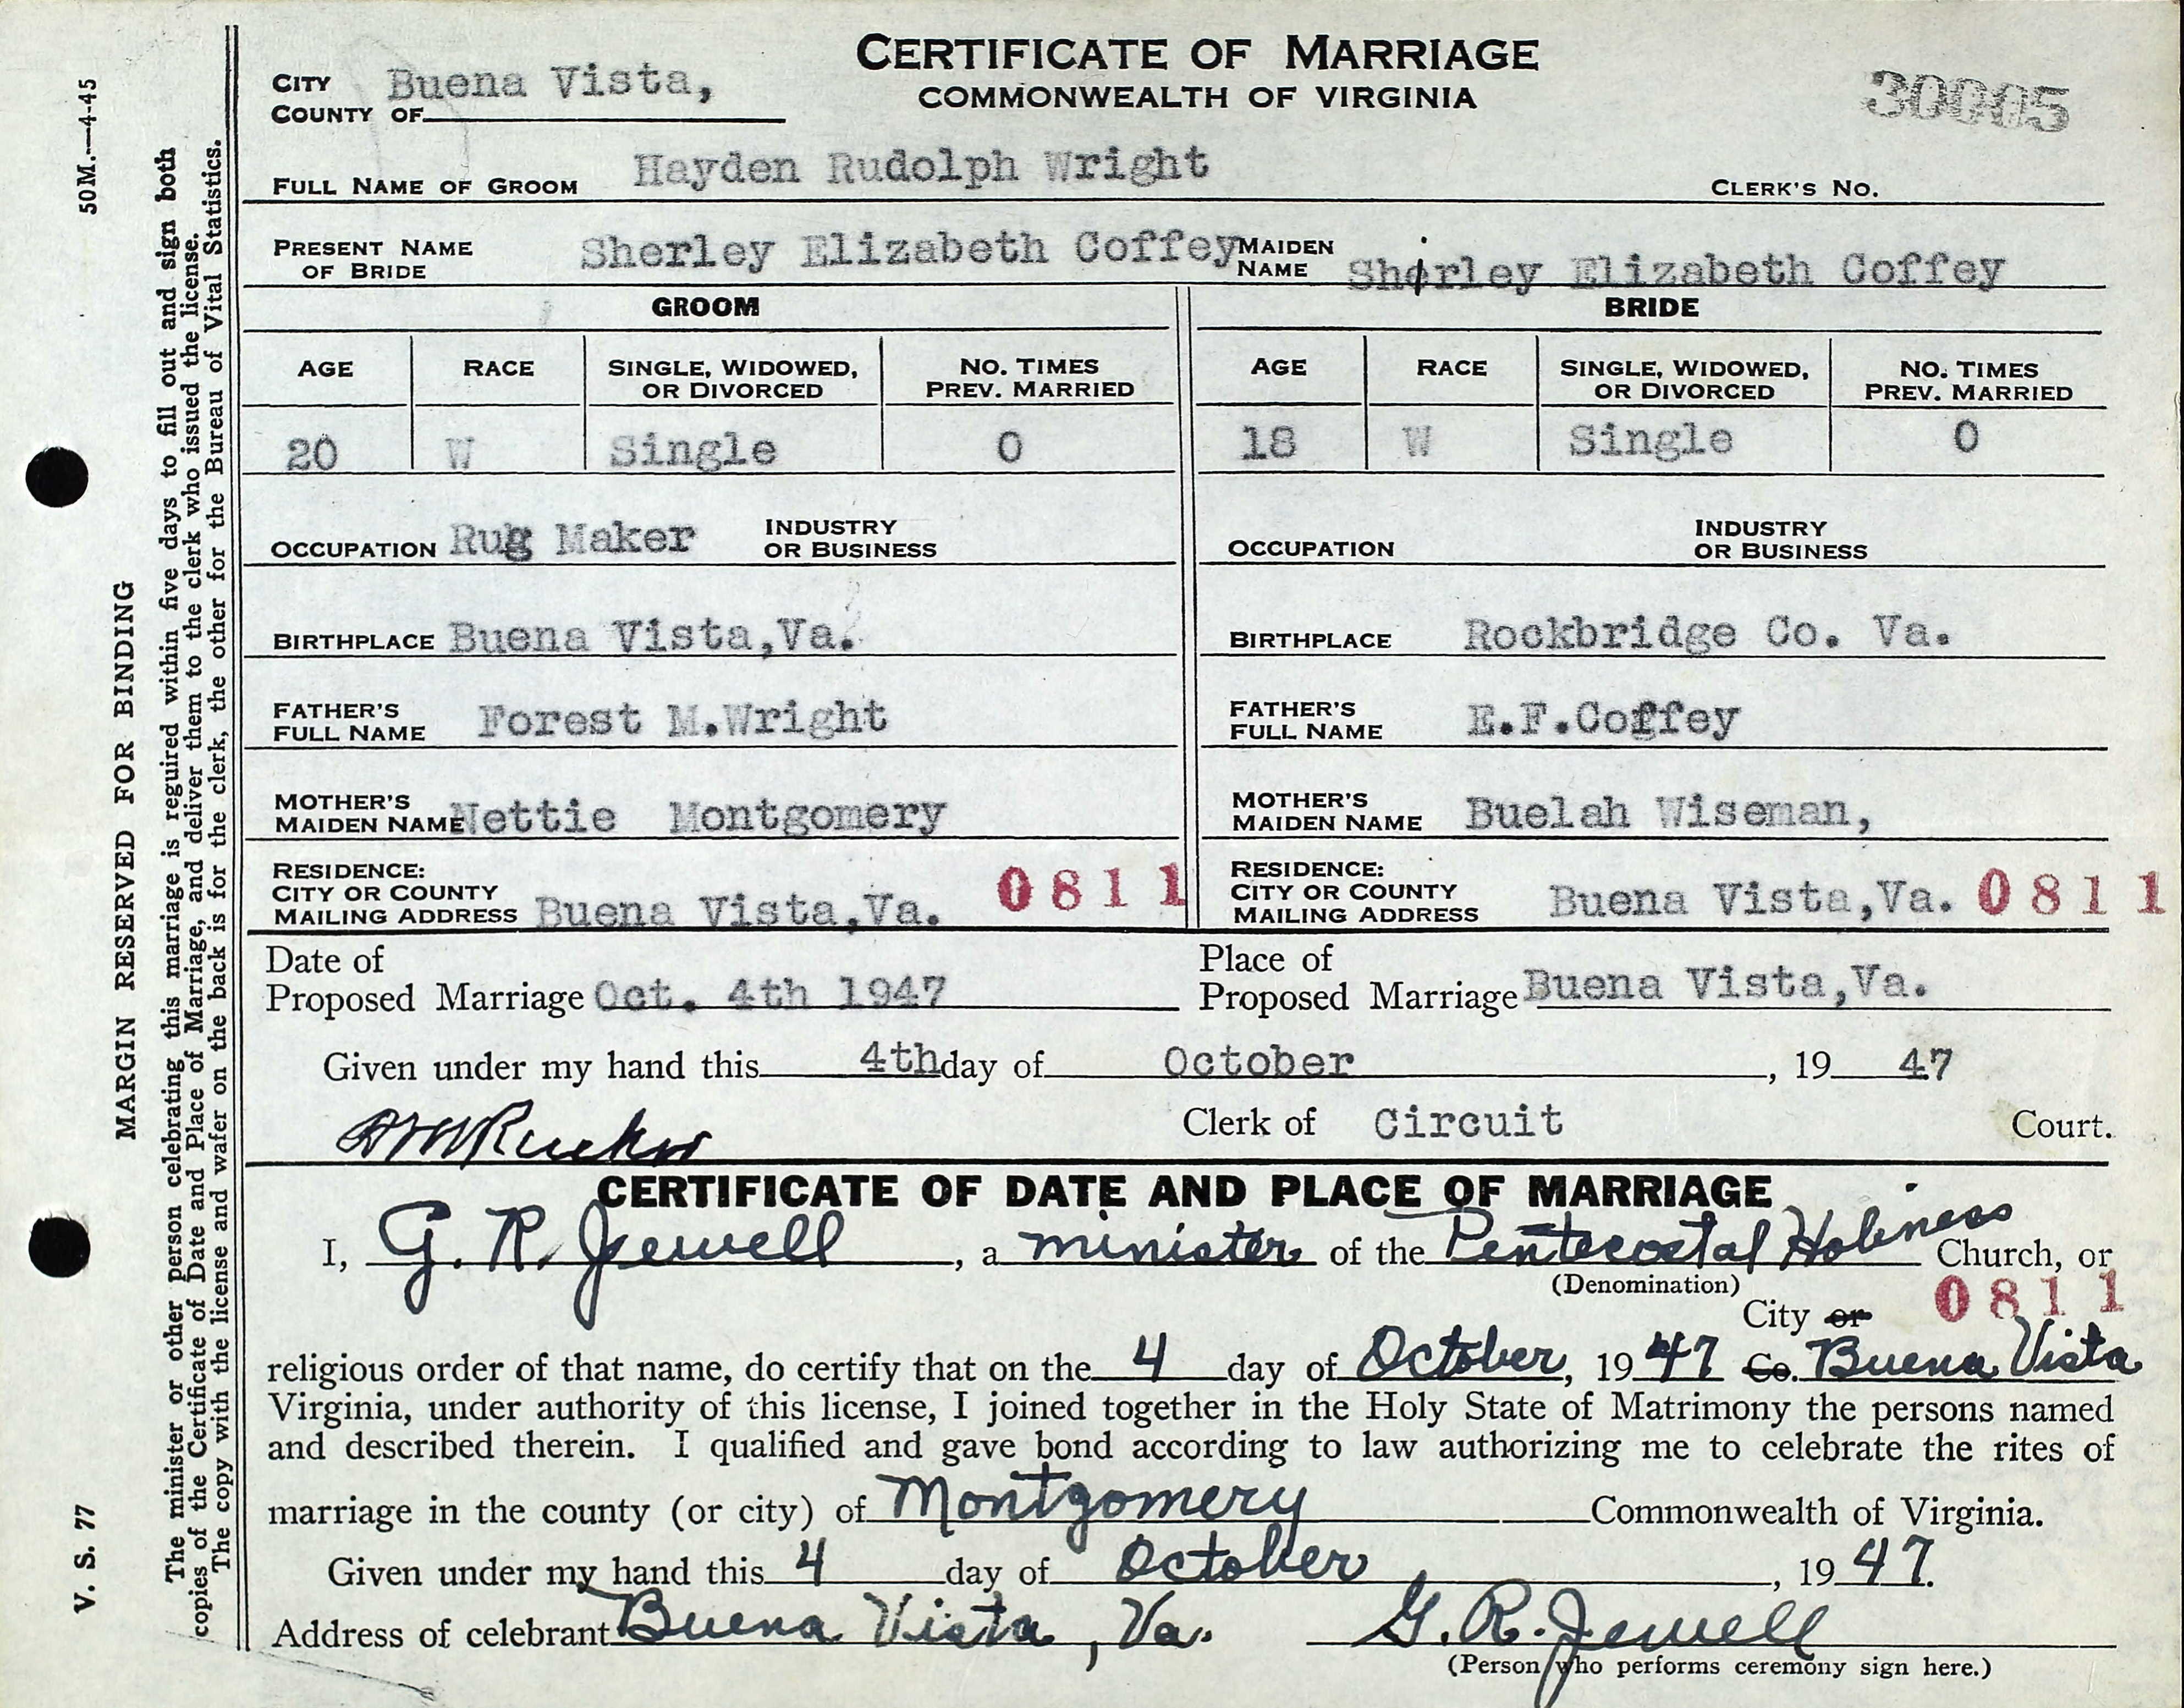 CERTIFICATE OF MARRIAGE
COMMONWEALTH OF VIRGINIA
30005
CITY
COUNTY OF Buena Vista,
FULL NAME OF GROOM Hayden Rudolph Wright CLERK'S NO.
PRESENT NAME OF BRIDE Sherley Elizabeth Coffey MAIDEN NAME Shirley Elizabeth Coffey
GROOM BRIDE
AGE RACE SINGLE, WIDOWED, OR DIVORCED NO. TIMES PREV. MARRIED AGE RACE SINGLE, WIDOWED, OR DIVORCED NO. TIMES PREV. MARRIED
20 W Single 0 18 W Single 0
OCCUPATION Rug Maker INDUSTRY OR BUSINESS OCCUPATION INDUSTRY OR BUSINESS
BIRTHPLACE Buena Vista,Va. BIRTHPLACE Rockbridge Co. Va.
FATHER'S FULL NAME Forest M.Wright FATHER'S FULL NAME E.F.Coffey
MOTHER'S MAIDEN NAME Nettie Montgomery MOTHER'S MAIDEN NAME Buelah Wiseman,
RESIDENCE: CITY OR COUNTY MAILING ADDRESS Buena Vista,Va. 0811 RESIDENCE: CITY OR COUNTY MAILING ADDRESS Buena Vista,Va. 0811
Date of Proposed Marriage Oct. 4th 1947 Place of Proposed Marriage Buena Vista,Va.
Given under my hand this 4th day of October, 19 47
Rucker Clerk of Circuit Court.
CERTIFICATE OF DATE AND PLACE OF MARRIAGE
I, G. R. Jewell, a minister of the Pentecostal Holiness Church, or
(Denomination)
City or 0811
religious order of that name, do certify that on the 4 day of October, 19 47 Co. Buena Vista
Virginia, under authority of this license, I joined together in the Holy State of Matrimony the persons named
and described therein. I qualified and gave bond according to law authorizing me to celebrate the rites of
marriage in the county (or city) of Montgomery Commonwealth of Virginia.
Given under my hand this 4 day of October, 19 47.
Address of celebrant Buena Vista, Va. G. R. Jewell
(Person who performs ceremony sign here.)
V. S. 77 MARGIN RESERVED FOR BINDING 50M.—4-45
The minister or other person celebrating this marriage is required within five days to fill out and sign both
copies of the Certificate of Date and Place of Marriage, and deliver them to the clerk who issued the license.
The copy with the license and wafer on the back is for the clerk, the other for the Bureau of Vital Statistics.